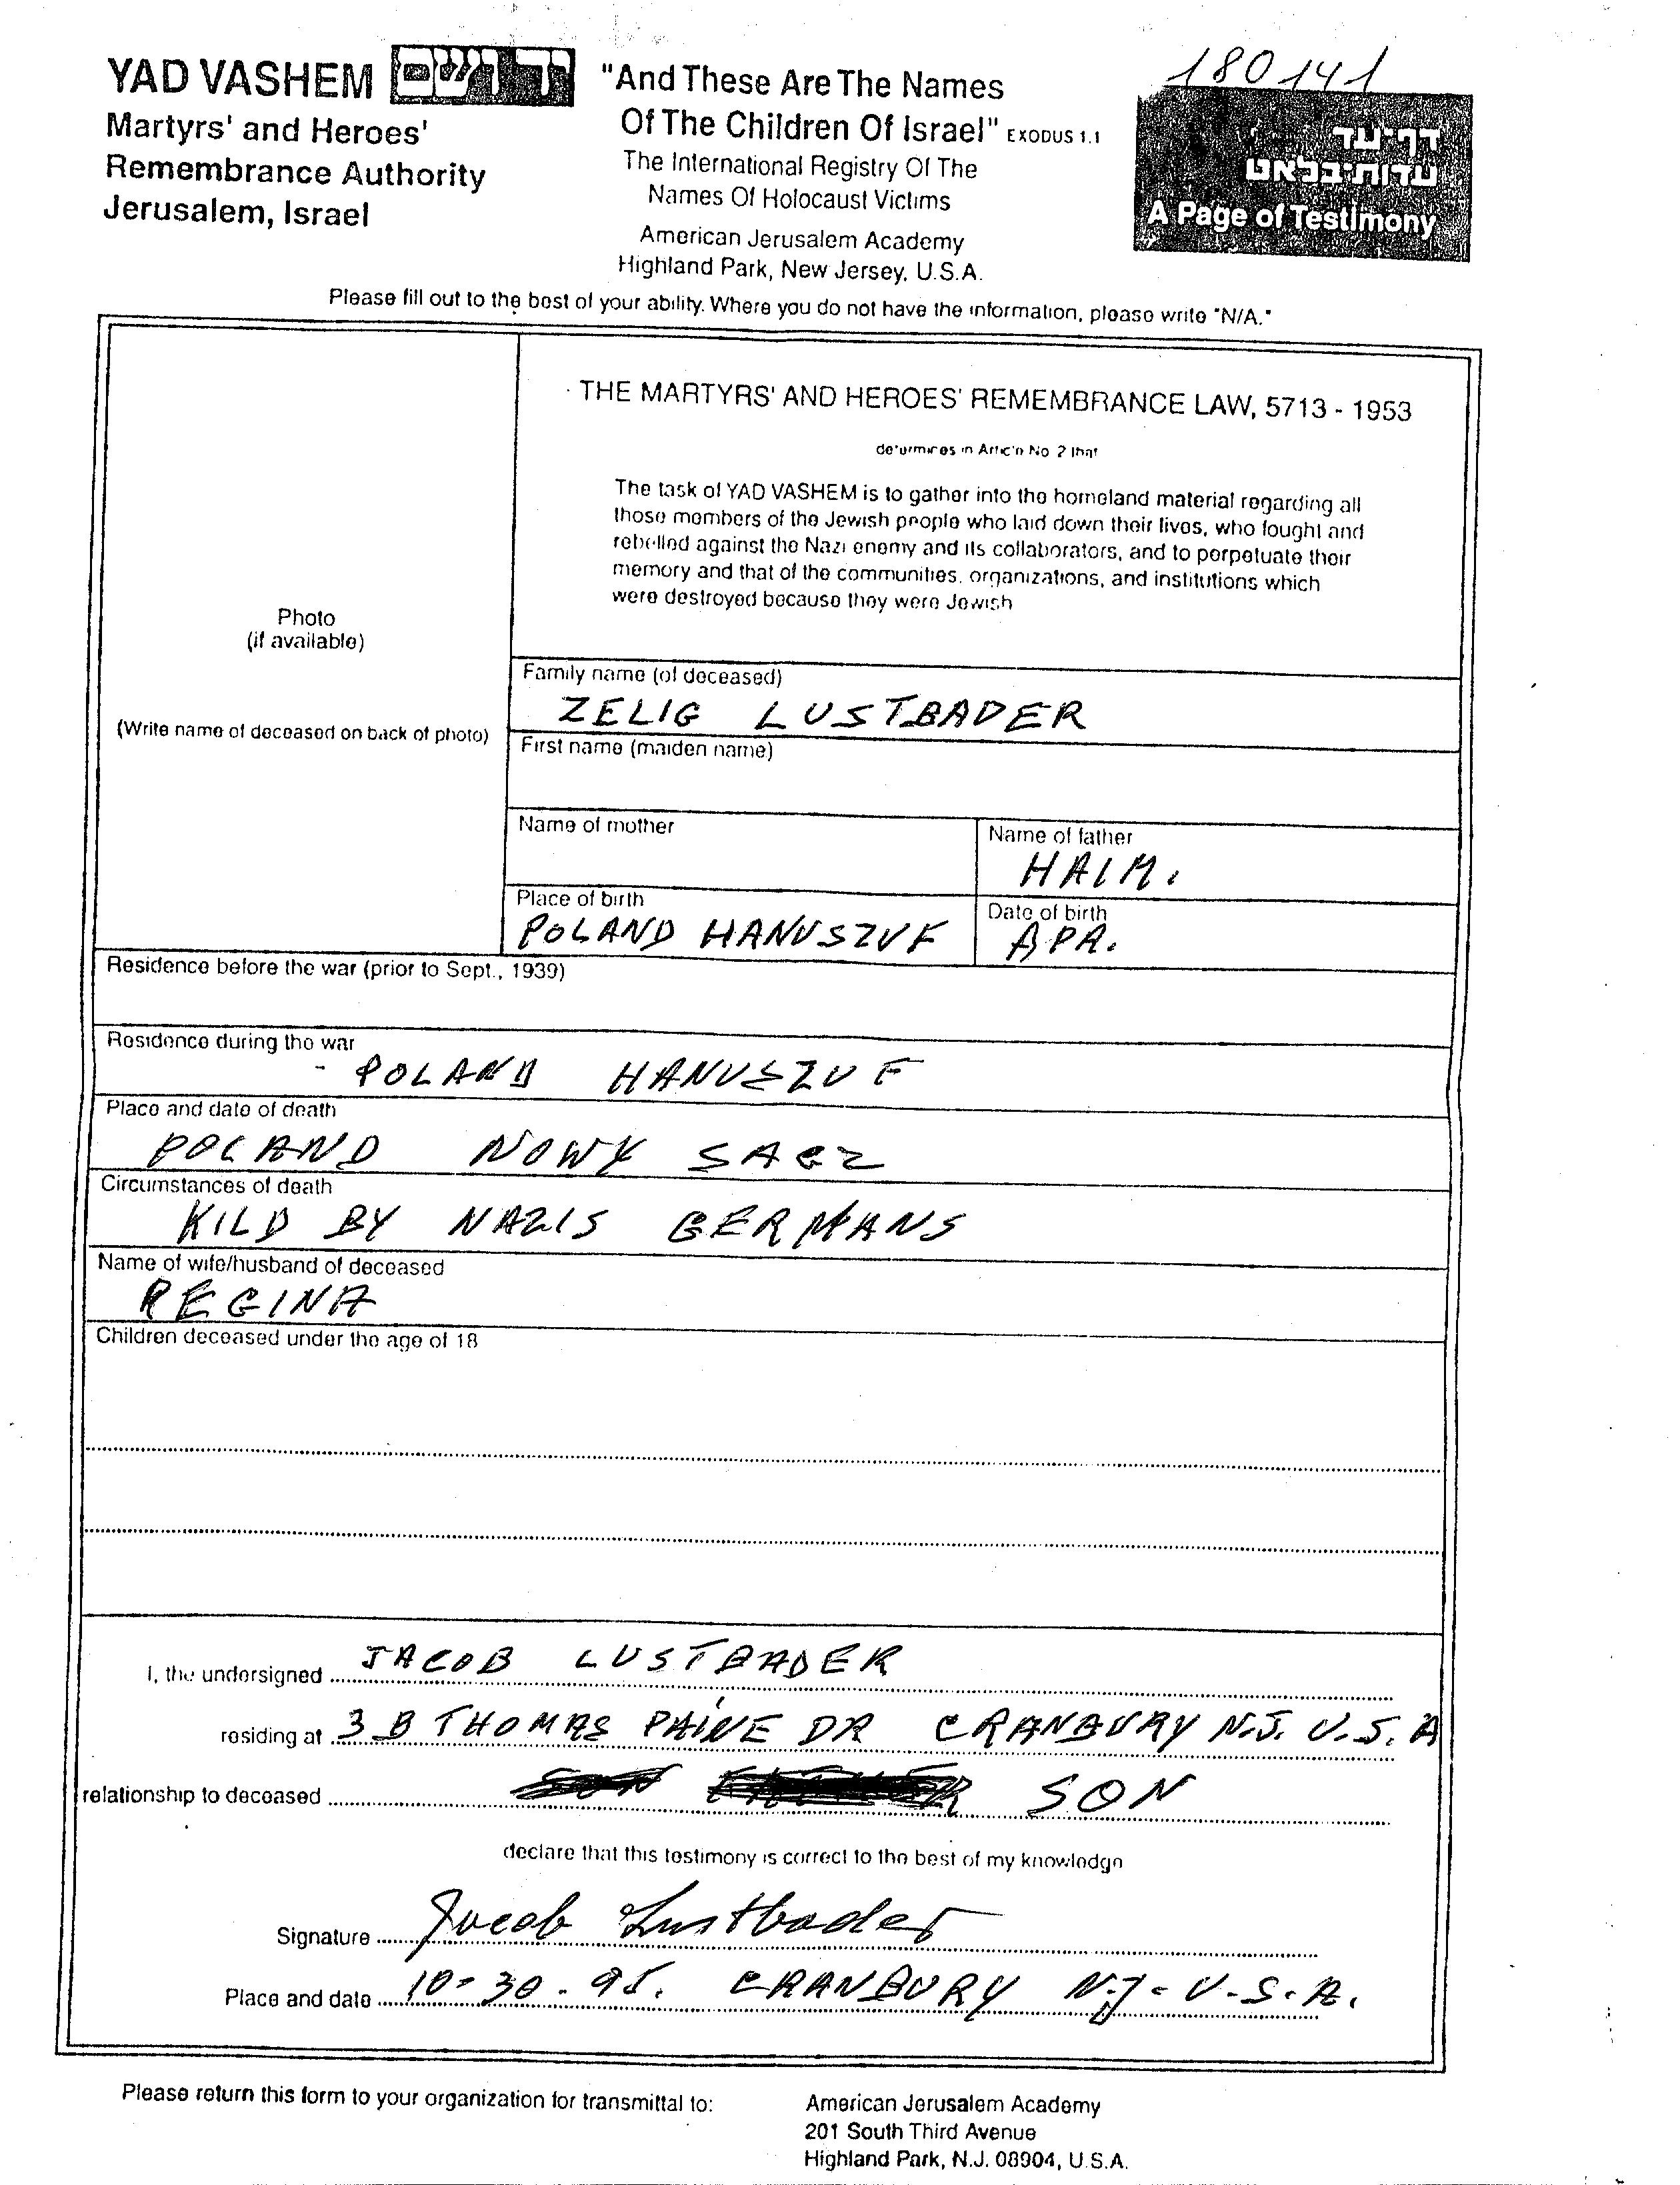 180141
YAD VASHEM יד ושם
Martyrs' and Heroes'
Remembrance Authority
Jerusalem, Israel
"And These Are The Names
Of The Children Of Israel" EXODUS 1.1
The International Registry Of The
Names Of Holocaust Victims
American Jerusalem Academy
Highland Park, New Jersey, U.S.A.
דף-עד
עדות-בלאט
A Page of Testimony
Please fill out to the best of your ability. Where you do not have the information, please write "N/A."
Photo
(if available)
(Write name of deceased on back of photo)
THE MARTYRS' AND HEROES' REMEMBRANCE LAW, 5713 - 1953
determines in Article No. 2 that
The task of YAD VASHEM is to gather into the homeland material regarding all
those members of the Jewish people who laid down their lives, who fought and
rebelled against the Nazi enemy and its collaborators, and to perpetuate their
memory and that of the communities, organizations, and institutions which
were destroyed because they were Jewish
Family name (of deceased)
ZELIG LUSTBADER
First name (maiden name)
Name of mother
Name of father
HAIM.
Place of birth
POLAND HANUSZUF
Date of birth
APR.
Residence before the war (prior to Sept., 1939)
Residence during the war
- POLAND HANUSZUF
Place and date of death
POLAND NOWY SACZ
Circumstances of death
KILD BY NAZIS GERMANS
Name of wife/husband of deceased
REGINA
Children deceased under the age of 18
I, the undersigned JACOB LUSTBADER
residing at 3 B THOMAS PAINE DR CRANBURY N.J. U.S.A
relationship to deceased SON
declare that this testimony is correct to the best of my knowledge
Signature Jacob Lustbader
Place and date 10-30.95. CRANBURY N.J - U.S.A.
Please return this form to your organization for transmittal to:
American Jerusalem Academy
201 South Third Avenue
Highland Park, N.J. 08904, U.S.A.